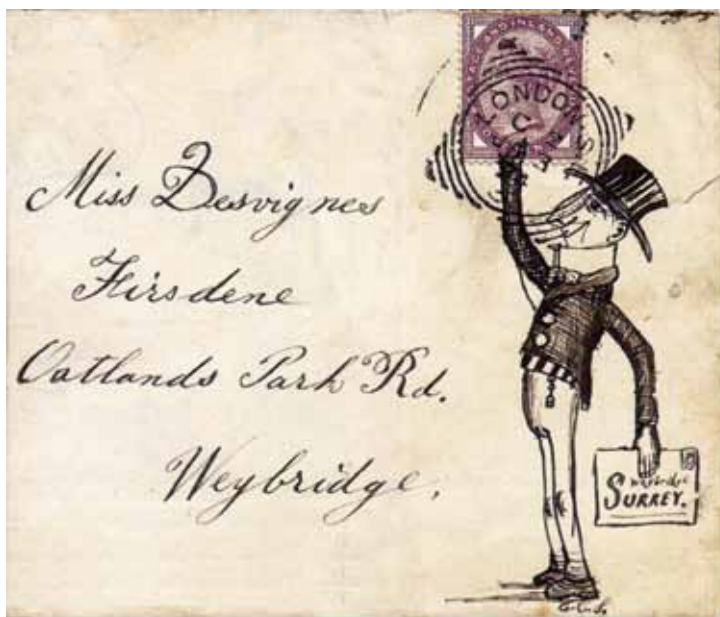 LONDON
Miss Desvignes
Firsdene
Oatlands Park Rd.
Weybridge.
SURREY.